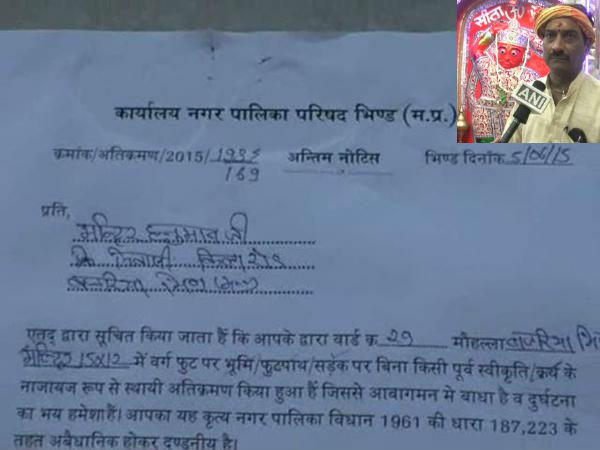 सीता
ANI
कार्यालय नगर पालिका परिषद भिण्ड (म.प्र.)
क्रमांक/अतिक्रमण/2015/ अन्तिम नोटिस भिण्ड दिनांक 5/06/15
169
प्रति,
मन्दिर हनुमान जी
एतद् द्वारा सूचित किया जाता हैं कि आपके द्वारा वार्ड क्र 29 मौहल्ला
मन्दिर 15x12 में वर्ग फुट पर भूमि/फुटपाथ/सड़क पर बिना किसी पूर्व स्वीकृति/क्रय के
नाजायज रूप से स्थायी अतिक्रमण किया हुआ हैं जिससे आवागमन मे बाधा है व दुर्घटना
का भय हमेशा हैं। आपका यह कृत्य नगर पालिका विधान 1961 की धारा 187,223 के
तहत अबैधानिक होकर दण्डनीय है।